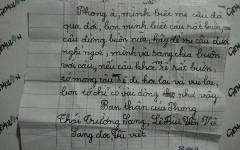 Phong à, mình biết mẹ cậu đã
qua đời, bọn mình biết cậu rất buồn
cậu đừng buồn nữa, hãy để mẹ cậu được
nghỉ ngơi, mình và sang chia buồn
với cậu, nếu cậu khóc sẽ rất buồn,
cơ mong cậu đi học lại và vui lại,
bọn tớ chỉ có vài dòng như vậy
Bạn thân của Phong
Thái Trường Sang, Lê Hữu Văn Vĩ
Sang đọc Vĩ viết